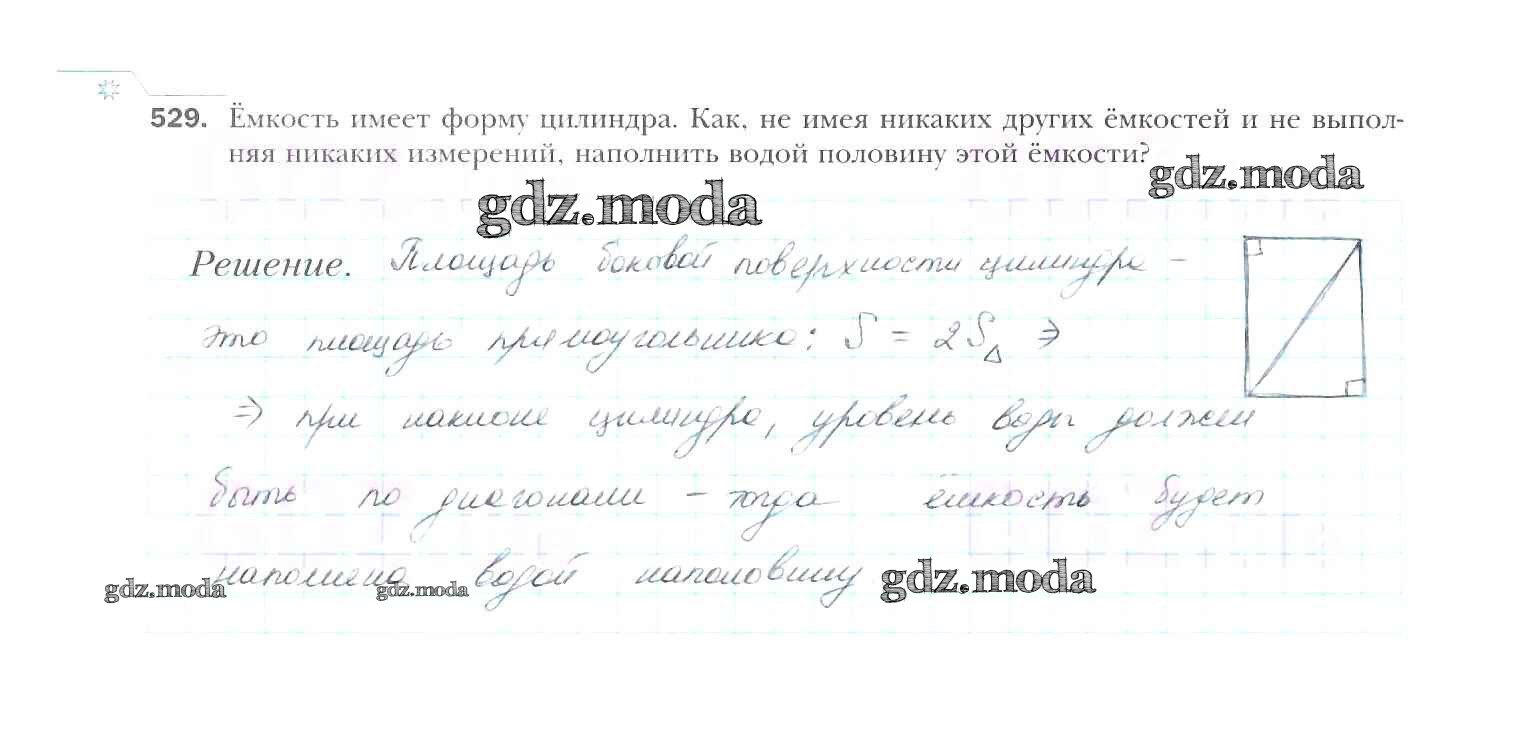 529. Ёмкость имеет форму цилиндра. Как, не имея никаких других ёмкостей и не выпол-
няя никаких измерений, наполнить водой половину этой ёмкости?
gdz.moda
gdz.moda
Решение. Площадь боковой поверхности цилиндра –
это площадь прямоугольника: S = 2S△ ⇒
⇒ при наклоне цилиндра, уровень воды должен
быть по диагонали – тогда ёмкость будет
наполнена водой наполовину
gdz.moda
gdz.moda
gdz.moda